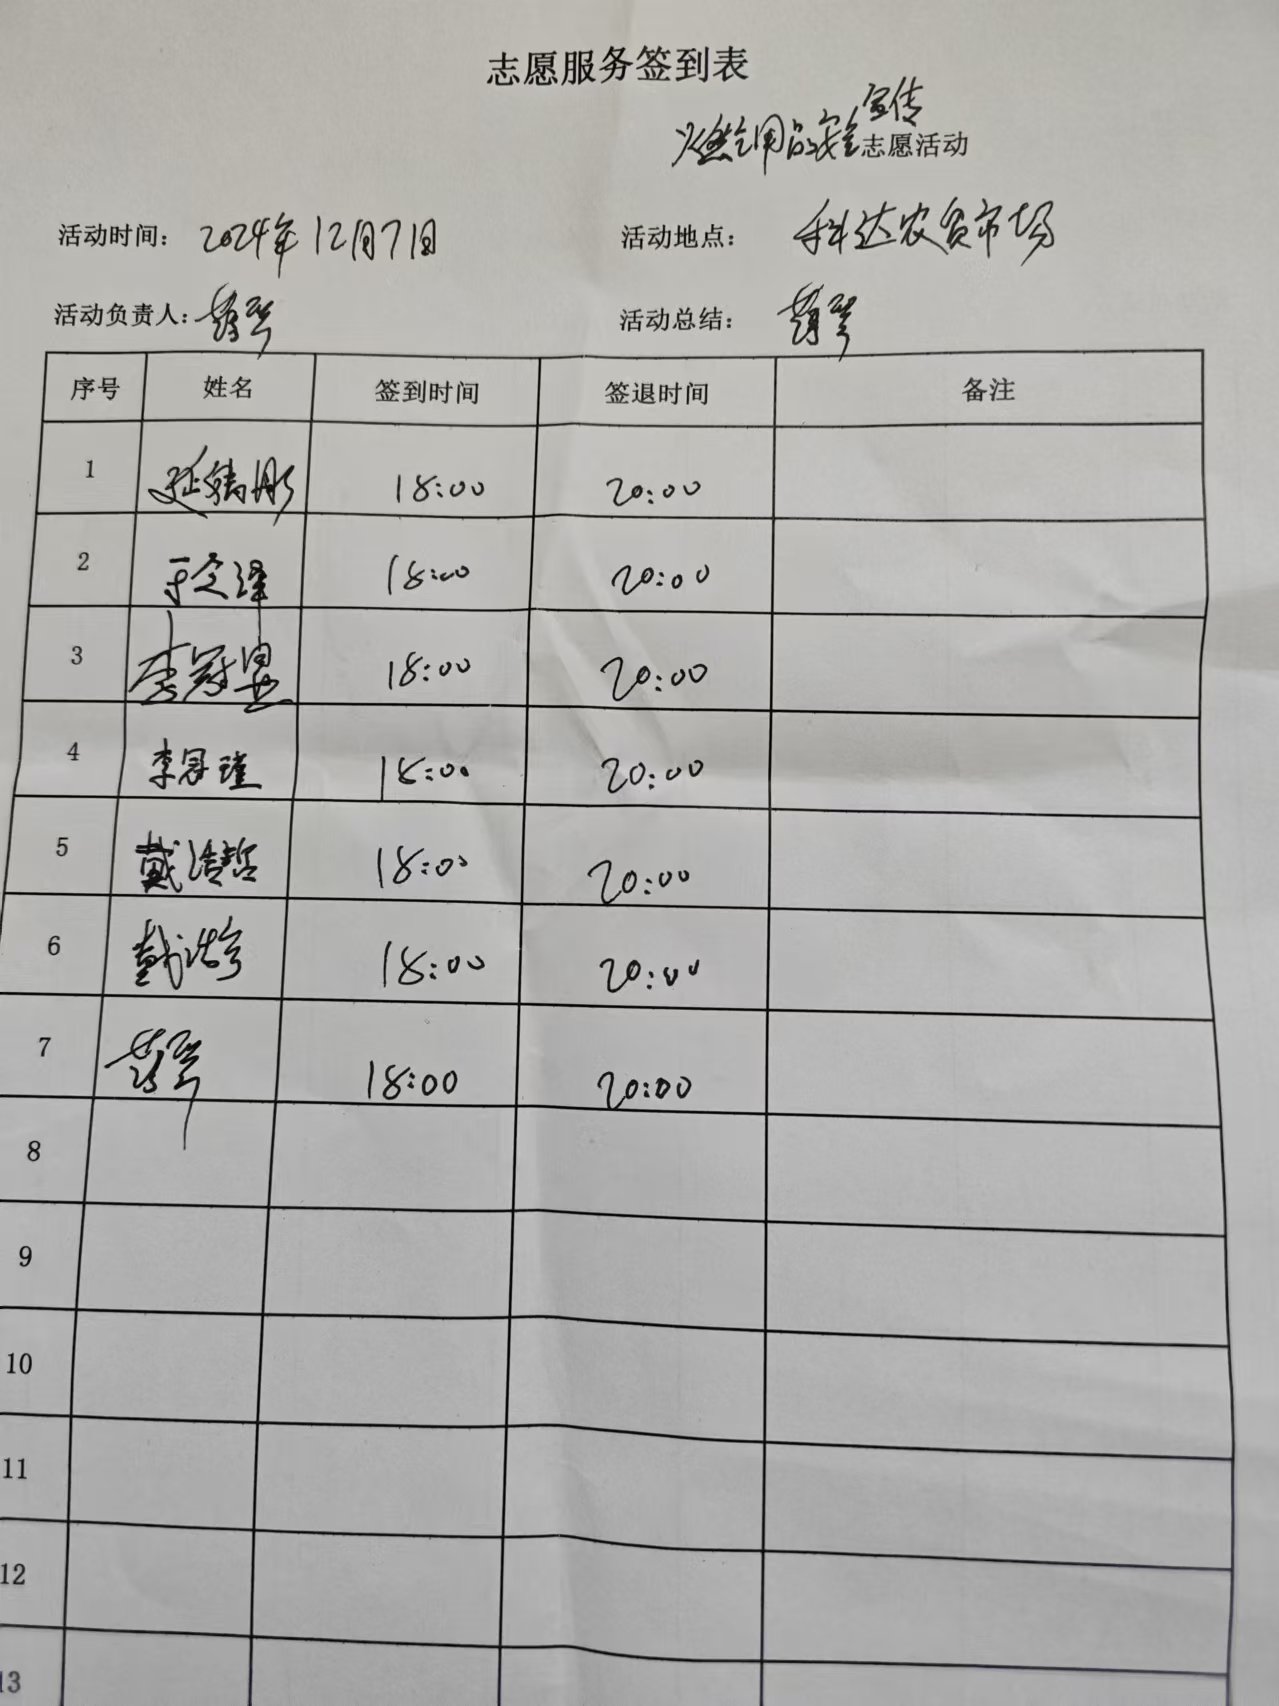 志愿服务签到表
宣传
燃气用品安全志愿活动
活动时间：2024年12月7日 活动地点：科达农贸市场
活动负责人： 活动总结：
序号 姓名 签到时间 签退时间 备注
1 18:00 20:00
2 于定泽 18:00 20:00
3 李冠昱 18:00 20:00
4 李冠瑾 18:00 20:00
5 戴浩哲 18:00 20:00
6 戴浩宇 18:00 20:00
7 18:00 20:00
8
9
10
11
12
13